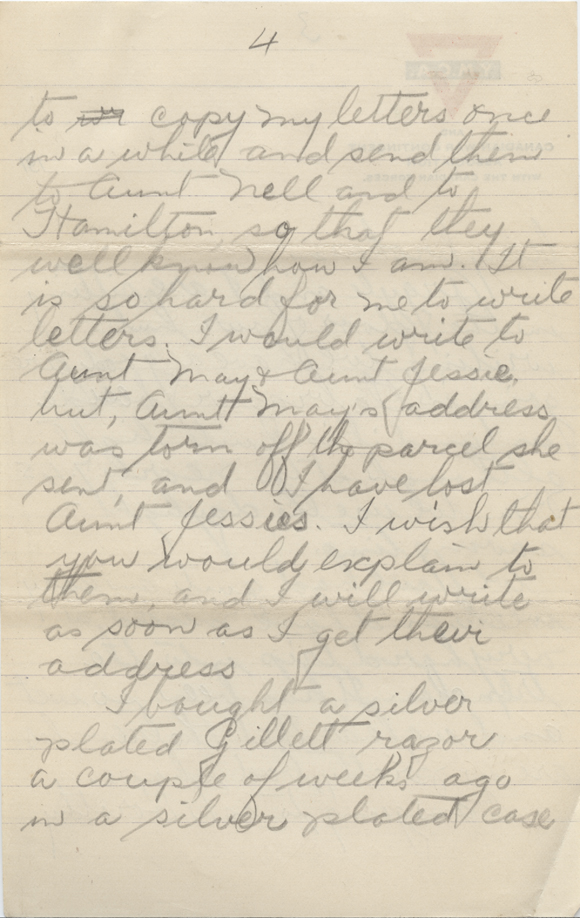 4
to copy my letters once
in a while, and send them
to Aunt Nell and to
Hamilton, so that they
well know how I am. It
is so hard for me to write
letters. I would write to
Aunt May & Aunt Jessie,
but, Auntt May's address
was torn off the parcel she
sent, and I have lost
Aunt Jessies. I wish that
you would explain to
them, and I will write
as soon as I get their
address
I bought a silver
plated Gillett razor
a couple of weeks ago
in a silver plated case